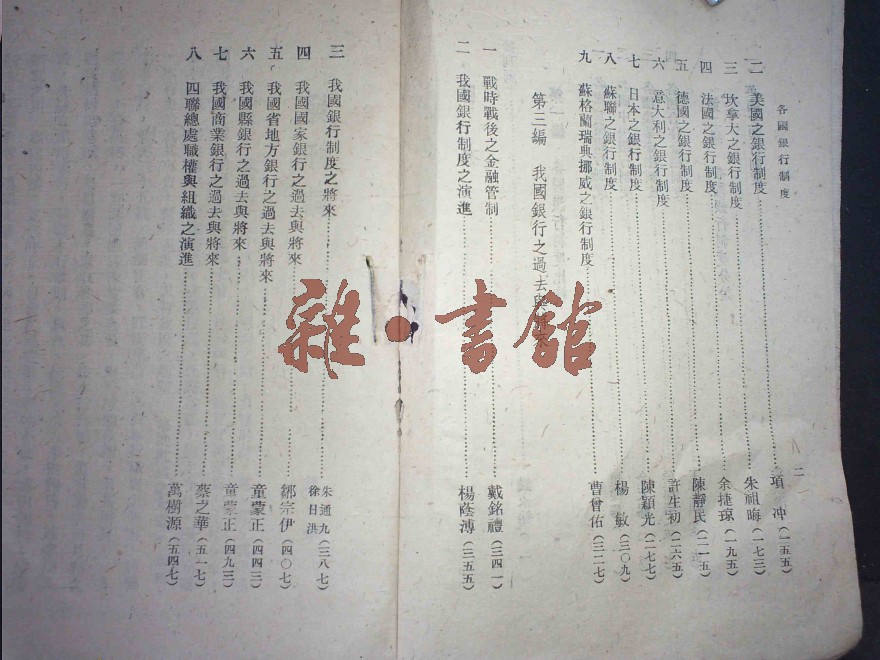 各國銀行制度
二
二　美國之銀行制度……項　冲（一五五）
三　坎拿大之銀行制度……朱祖晦（一七三）
四　法國之銀行制度……余捷瓊（一九五）
五　德國之銀行制度……陳靜民（二一五）
六　意大利之銀行制度……許生初（二六五）
七　日本之銀行制度……陳穎光（二七七）
八　蘇聯之銀行制度……楊　敏（三〇九）
九　蘇格蘭瑞典挪威之銀行制度……曹曾佑（三二七）
第三編　我國銀行之過去與
一　戰時戰後之金融管制……戴銘禮（三四一）
二　我國銀行制度之演進……楊蔭溥（三五五）
三　我國銀行制度之將來……朱通九（三八七）
徐日洪
四　我國國家銀行之過去與將來……鄒宗伊（四〇七）
五　我國省地方銀行之過去與將來……童蒙正（四四三）
六　我國縣銀行之過去與將來……童蒙正（四九三）
七　我國商業銀行之過去與將來……蔡之華（五一七）
八　四聯總處職權與組織之演進……萬樹源（五四七）
雜·書館